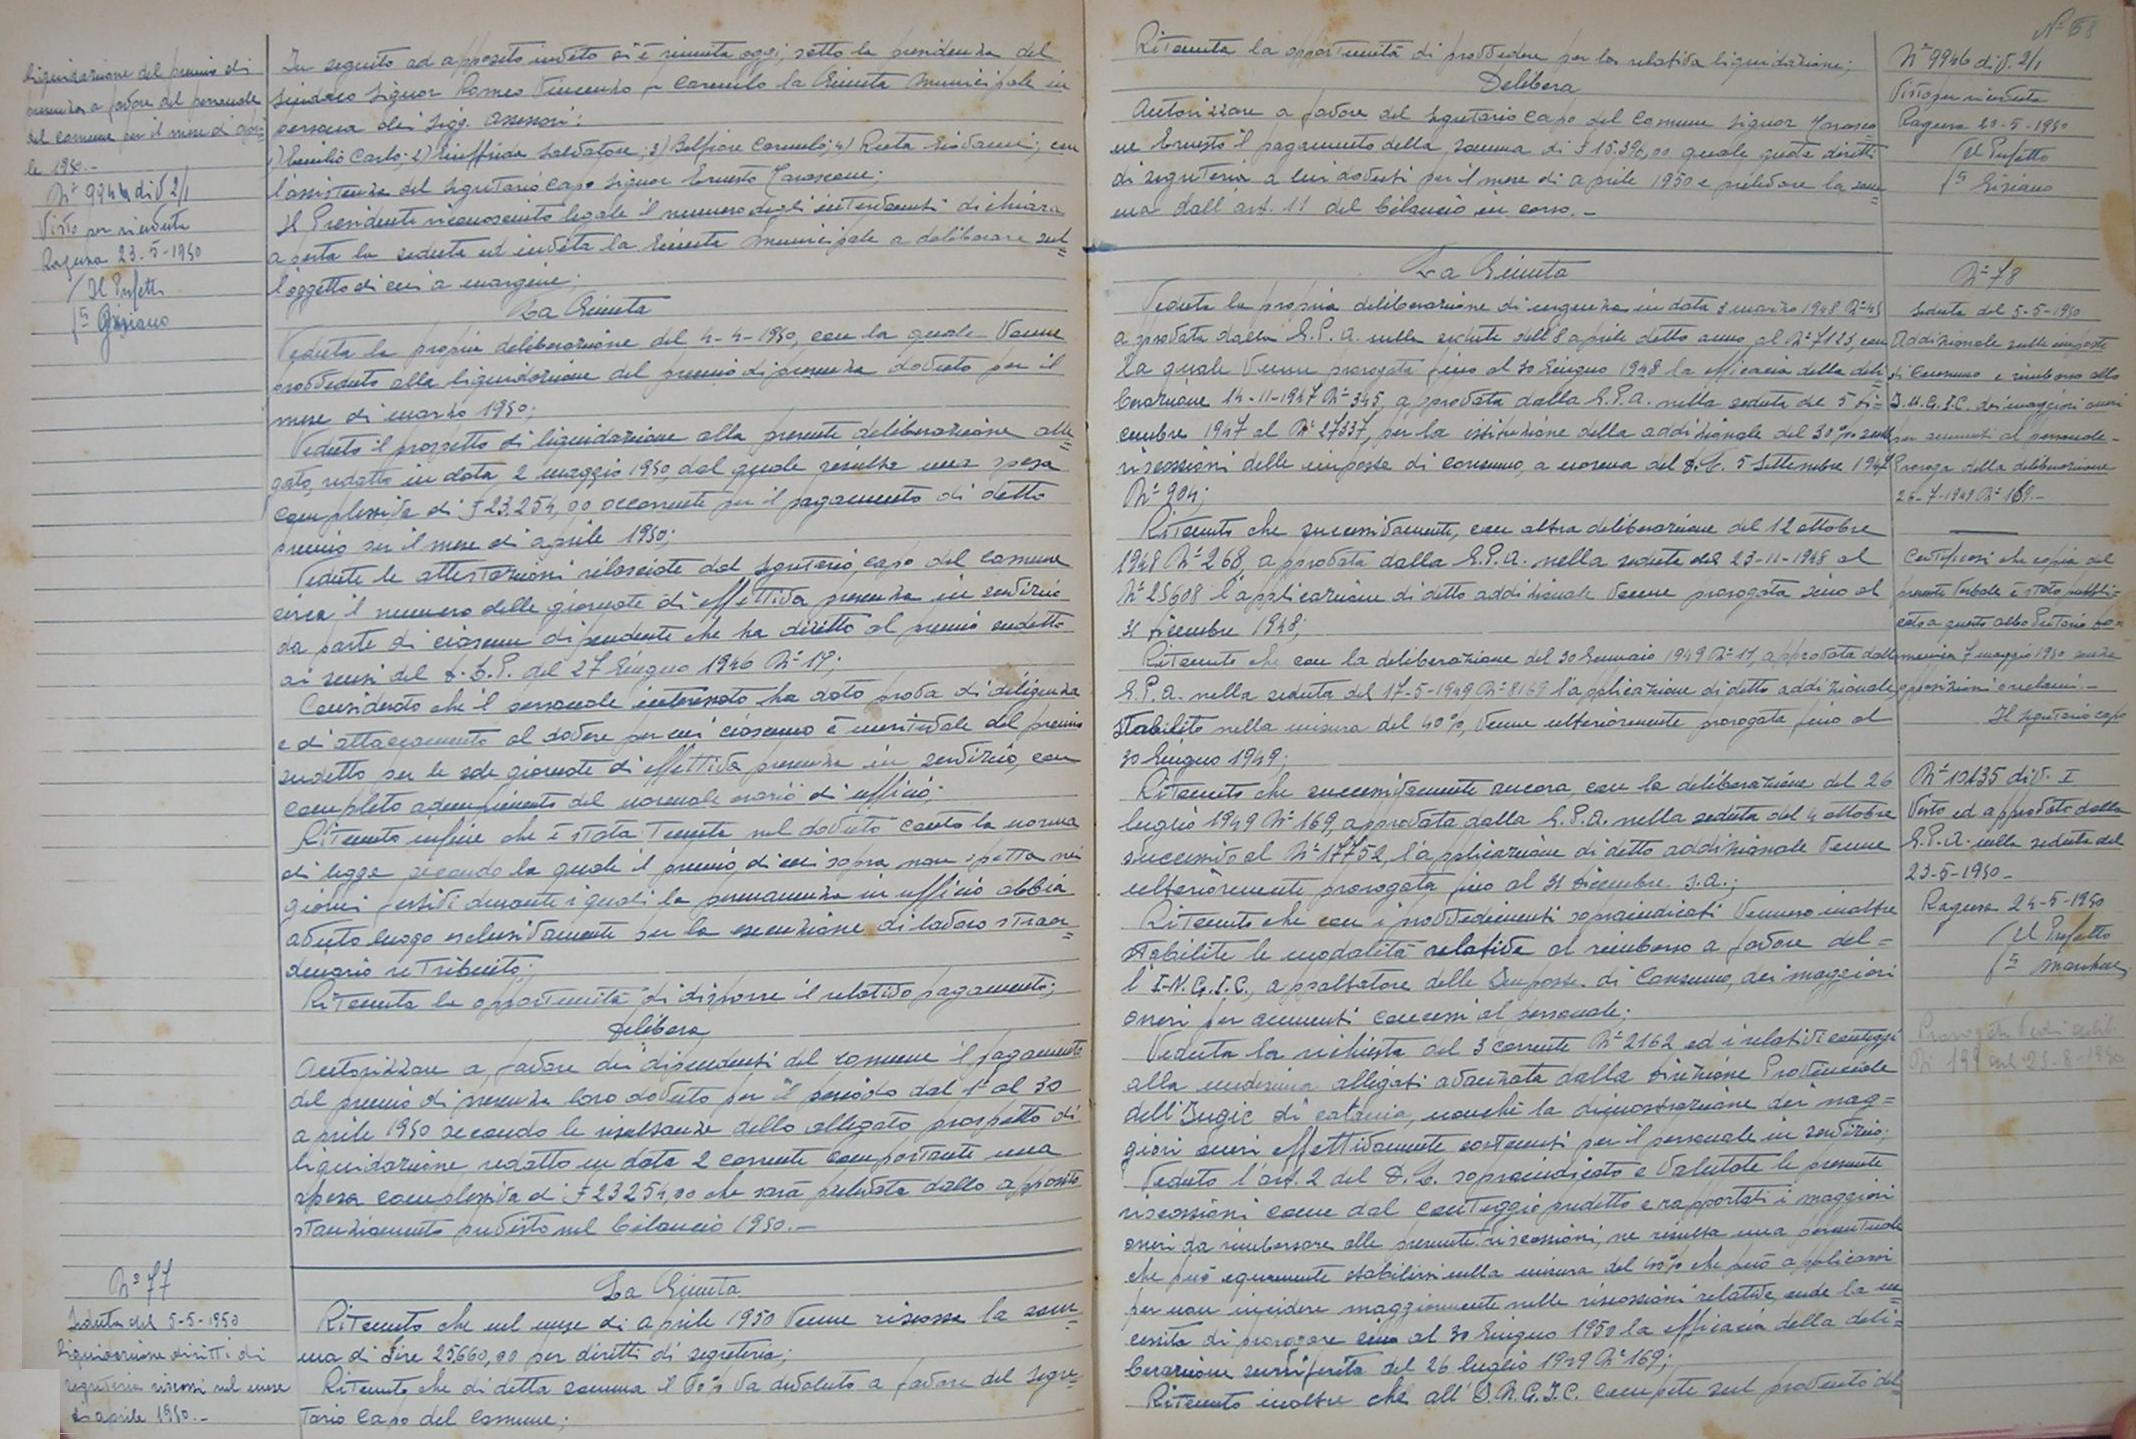 Liquidazione del premio di
presenza a favore del personale
del comune per il mese di apri=
le 1950.-
Nº 9944 div 2/1
Visto per ricevuta
Ragusa 23-5-1950
Il Prefetto
In seguito ad apposito invito si è riunita oggi, sotto la presidenza del
Sindaco Signor Romeo Vincenzo fu Carmelo la Giunta Municipale in
persona dei Sigg. Assessori:
1) Emilio Carlo; 2) Giuffrida Salvatore; 3) Belfiore Carmelo; 4) Giovanni; con
l'assistenza del Segretario Capo Signor Ernesto
Il Presidente riconosciuto legale il numero degli intervenuti dichiara
aperta la seduta ed invita la Giunta Municipale a deliberare sul=
l'oggetto di cui a margine;
La Giunta
Veduta la propria deliberazione del 4-4-1950, con la quale venne
provveduto alla liquidazione del premio di presenza dovuto per il
mese di marzo 1950;
Veduto il prospetto di liquidazione alla presente deliberazione alle=
gato, redatto in data 2 maggio 1950, dal quale risulta una spesa
complessiva di £ 23.254,00 occorrente per il pagamento di detto
premio per il mese di aprile 1950;
Vedute le attestazioni rilasciate dal Segretario capo del comune
circa il numero delle giornate di effettiva presenza in servizio
da parte di ciascun dipendente che ha diritto al premio sudetto
ai sensi del D.L.P. del 27 Giugno 1946 Nº 19;
Considerato che il personale interessato ha dato prova di diligenza
e di attaccamento al dovere per cui ciascuno è meritevole del premio
sudetto per le sole giornate di effettiva presenza in servizio, con
completo adempimento del normale orario di ufficio;
Ritenuto infine che è stata tenuta nel dovuto conto la norma
di legge secondo la quale il premio di cui sopra non spetta nei
giorni festivi durante i quali la permanenza in ufficio abbia
avuto luogo esclusivamente per la esecuzione di lavoro straor=
dinario retribuito;
Ritenuta la opportunità di disporre il relativo pagamento;
Delibera
Autorizzare a favore dei dipendenti del comune il pagamento
del premio di presenza loro dovuto per il periodo dal 1º al 30
aprile 1950 secondo le risultanze dello allegato prospetto di
liquidazione redatto in data 2 corrente comportante una
spesa complessiva di £ 23254,00 che sarà prelevata dallo apposito
stanziamento previsto nel bilancio 1950.-
Nº 77
Seduta del 5-5-1950
Liquidazione diritti di
segreteria riscossi nel mese
di aprile 1950.-
La Giunta
Ritenuto che nel mese di aprile 1950 venne riscossa la som=
ma di Lire 25660,00 per diritti di segreteria;
Ritenuto che di detta somma il 60% va devoluto a favore del Segre=
tario Capo del Comune;
Nº 68
Ritenuta la opportunità di provvedere per la relativa liquidazione;
Delibera
Autorizzare a favore del Segretario Capo del Comune Signor
Ernesto il pagamento della somma di £ 15.396,00 quale quota diritti
di segreteria a lui dovuti per il mese di aprile 1950 e prelevare la som=
ma dall'art. 11 del bilancio in corso.-
Nº 9946 div. 2/1
Visto per ricevuta
Ragusa 20-5-1950
Il Prefetto
La Giunta
Veduta la propria deliberazione di urgenza in data 3 marzo 1948 Nº 45
approvata dalla G.P.A. nella seduta dell'8 aprile detto anno al Nº 7123, con
la quale venne prorogata fino al 30 Giugno 1948 la efficacia della deli=
berazione 14-11-1947 Nº 345, approvata dalla G.P.A. nella seduta del 5 di=
cembre 1947 al Nº 27337, per la istituzione della addizionale del 30% sulle
riscossioni delle imposte di consumo, a norma del D.L. 5 Settembre 1947
Nº 904;
Ritenuto che successivamente, con altra deliberazione del 12 ottobre
1948 Nº 268, approvata dalla G.P.A. nella seduta del 23-11-1948 al
Nº 25608 l'applicazione di detto addizionale venne prorogata sino al
31 Dicembre 1948;
Ritenuto che con la deliberazione del 30 Gennaio 1949 Nº 11, approvata dalla
G.P.A. nella seduta del 17-5-1949 Nº 8169 l'applicazione di detto addizionale
stabilito nella misura del 40%, venne ulteriormente prorogata fino al
30 Giugno 1949;
Ritenuto che successivamente ancora, con la deliberazione del 26
luglio 1949 Nº 169, approvata dalla G.P.A. nella seduta del 4 ottobre
successivo al Nº 17752, l'applicazione di detto addizionale venne
ulteriormente prorogata fino al 31 Dicembre s.a.;
Ritenuto che con i provvedimenti sopraindicati vennero inoltre
stabilite le modalità relative al rimborso a favore del=
l'I.N.G.I.C., appaltatore delle Imposte di Consumo, dei maggiori
oneri per aumenti concessi al personale;
Veduta la richiesta del 3 corrente Nº 2162 ed i relativi conteggi
alla medesima allegati avanzata dalla Direzione Provinciale
dell'Ingic di Catania, nonché la dimostrazione dei mag=
giori oneri effettivamente sostenuti per il personale in servizio;
Veduto l'art. 2 del D.L. sopraindicato e valutate le presunte
riscossioni come dal conteggio predetto e rapportati i maggiori
oneri da rimborsare alle presunte riscossioni, ne risulta una percentuale
che può equamente stabilirsi nella misura del 40% che può applicarsi
per non incidere maggiormente nelle riscossioni relative, onde la ne=
cessità di prorogare sino al 30 Giugno 1950 la efficacia della deli=
berazione surriferita del 26 luglio 1949 Nº 169;
Ritenuto inoltre che all'I.N.G.I.C. compete sul provento del=
Nº 78
Seduta del 5-5-1950
Addizionale sulle imposte
di Consumo e rimborso allo
I.N.G.I.C. dei maggiori oneri
per aumenti al personale-
Proroga della deliberazione
26-7-1949 Nº 169.-
Certificasi che copia del
presente verbale è stata pubbli=
cata a questo albo Pretorio do=
menica 7 maggio 1950 senza
opposizioni o reclami.-
Il Segretario capo
Nº 10135 div. I
Visto ed approvato dalla
G.P.A. nella seduta del
23-5-1950-
Ragusa 24-5-1950
Il Prefetto
Prorogata Vedi delib.
Nº 199 del 25-8-1950